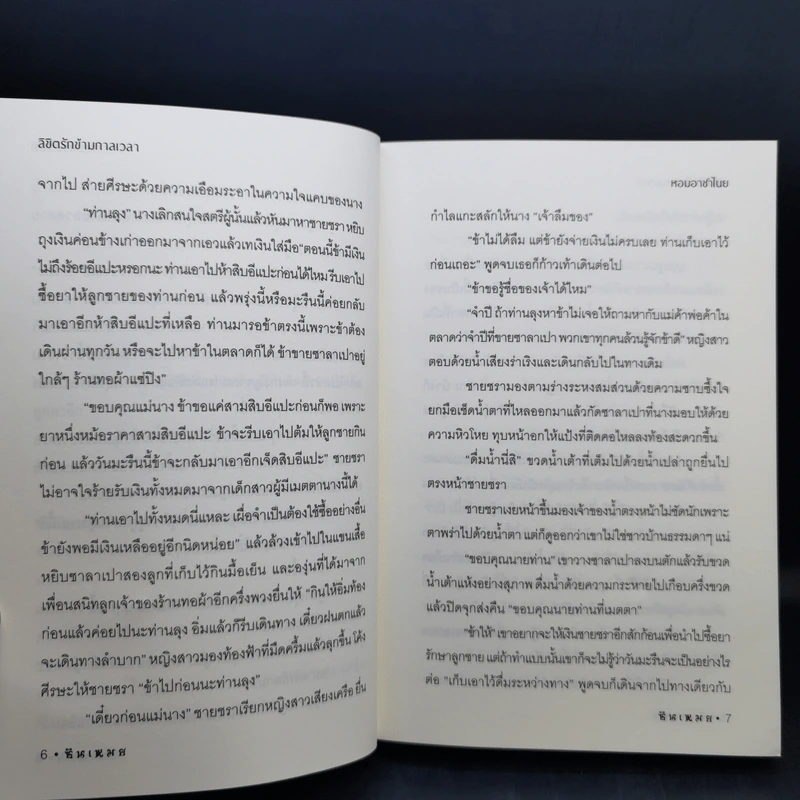 ลิขิตรักข้ามกาลเวลา
จากไป ส่ายศีรษะด้วยความเอือมระอาในความใจแคบของนาง
“ท่านลุง” นางเลิกสนใจสตรีผู้นั้นแล้วหันมาหาชายชรา หยิบ
ถุงเงินค่อนข้างเก่าออกมาจากเอวแล้วเทเงินใส่มือ “ตอนนี้ข้ามีเงิน
ไม่ถึงร้อยอีแปะหรอกนะ ท่านเอาไปห้าสิบอีแปะก่อนได้ไหม รีบเอาไป
ซื้อยาให้ลูกชายของท่านก่อน แล้วพรุ่งนี้หรือมะรืนนี้ค่อยกลับ
มาเอาอีกห้าสิบอีแปะที่เหลือ ท่านมารอข้าตรงนี้เพราะข้าต้อง
เดินผ่านทุกวัน หรือจะไปหาข้าในตลาดก็ได้ ข้าขายซาลาเปาอยู่
ใกล้ๆ ร้านทอผ้าแซ่ปิง”
“ขอบคุณแม่นาง ข้าขอแค่สามสิบอีแปะก่อนก็พอ เพราะ
ยาหนึ่งหม้อราคาสามสิบอีแปะ ข้าจะรีบเอาไปต้มให้ลูกชายกิน
ก่อน แล้ววันมะรืนนี้ข้าจะกลับมาเอาอีกเจ็ดสิบอีแปะ” ชายชรา
ไม่อาจใจร้ายรับเงินทั้งหมดมาจากเด็กสาวผู้มีเมตตานางนี้ได้
“ท่านเอาไปทั้งหมดนี่แหละ เผื่อจำเป็นต้องใช้ซื้ออย่างอื่น
ข้ายังพอมีเงินเหลืออยู่อีกนิดหน่อย” แล้วล้วงเข้าไปในแขนเสื้อ
หยิบซาลาเปาสองลูกที่เก็บไว้กินมื้อเย็น และองุ่นที่ได้มาจาก
เพื่อนสนิทลูกเจ้าของร้านทอผ้าอีกครึ่งพวงยื่นให้ “กินให้อิ่มท้อง
ก่อนแล้วค่อยไปนะท่านลุง อิ่มแล้วก็รีบเดินทาง เดี๋ยวฝนตกแล้ว
จะเดินทางลำบาก” หญิงสาวมองท้องฟ้าที่มืดครึ้มแล้วลุกขึ้น โค้ง
ศีรษะให้ชายชรา “ข้าไปก่อนนะท่านลุง”
“เดี๋ยวก่อนแม่นาง” ชายชราเรียกหญิงสาวเสียงเครือ ยื่น
6 • ซินเหมย
หอมอาชาไนย
กำไลแกะสลักให้นาง “เจ้าลืมของ”
“ข้าไม่ได้ลืม แต่ข้ายังจ่ายเงินไม่ครบเลย ท่านเก็บเอาไว้
ก่อนเถอะ” พูดจบเธอก็ก้าวเท้าเดินต่อไป
“ข้าขอรู้ชื่อของเจ้าได้ไหม”
“จำปี ถ้าท่านลุงหาข้าไม่เจอให้ถามหากับแม่ค้าพ่อค้าใน
ตลาดว่าจำปีที่ขายซาลาเปา พวกเขาทุกคนล้วนรู้จักข้าดี” หญิงสาว
ตอบด้วยน้ำเสียงร่าเริงและเดินกลับไปในทางเดิม
ชายชรามองตามร่างระหงสมส่วนด้วยความซาบซึ้งใจ
ยกมือเช็ดน้ำตาที่ไหลออกมาแล้วกัดซาลาเปาที่นางมอบให้ด้วย
ความหิวโหย ทุบหน้าอกให้แป้งที่ติดคอไหลลงท้องสะดวกขึ้น
“ดื่มน้ำนี่สิ” ขวดน้ำเต้าที่เต็มไปด้วยน้ำเปล่าถูกยื่นไป
ตรงหน้าชายชรา
ชายชราเงยหน้าขึ้นมองเจ้าของน้ำตรงหน้าไม่ชัดนักเพราะ
ตาพร่าไปด้วยน้ำตา แต่ก็ดูออกว่าเขาไม่ใช่ชาวบ้านธรรมดาๆ แน่
“ขอบคุณนายท่าน” เขาวางซาลาเปาลงบนตักแล้วรับขวด
น้ำเต้าแห้งอย่างสุภาพ ดื่มน้ำด้วยความกระหายไปเกือบครึ่งขวด
แล้วปิดจุกส่งคืน “ขอบคุณนายท่านที่เมตตา”
“ข้าให้” เขาอยากจะให้เงินชายชราอีกสักก้อนเพื่อนำไปซื้อยา
รักษาลูกชาย แต่ถ้าทำแบบนั้นเขาก็จะไม่รู้ว่าวันมะรืนจะเป็นอย่างไร
ต่อ “เก็บเอาไว้ดื่มระหว่างทาง” พูดจบก็เดินจากไปทางเดียวกับ
ซินเหมย • 7